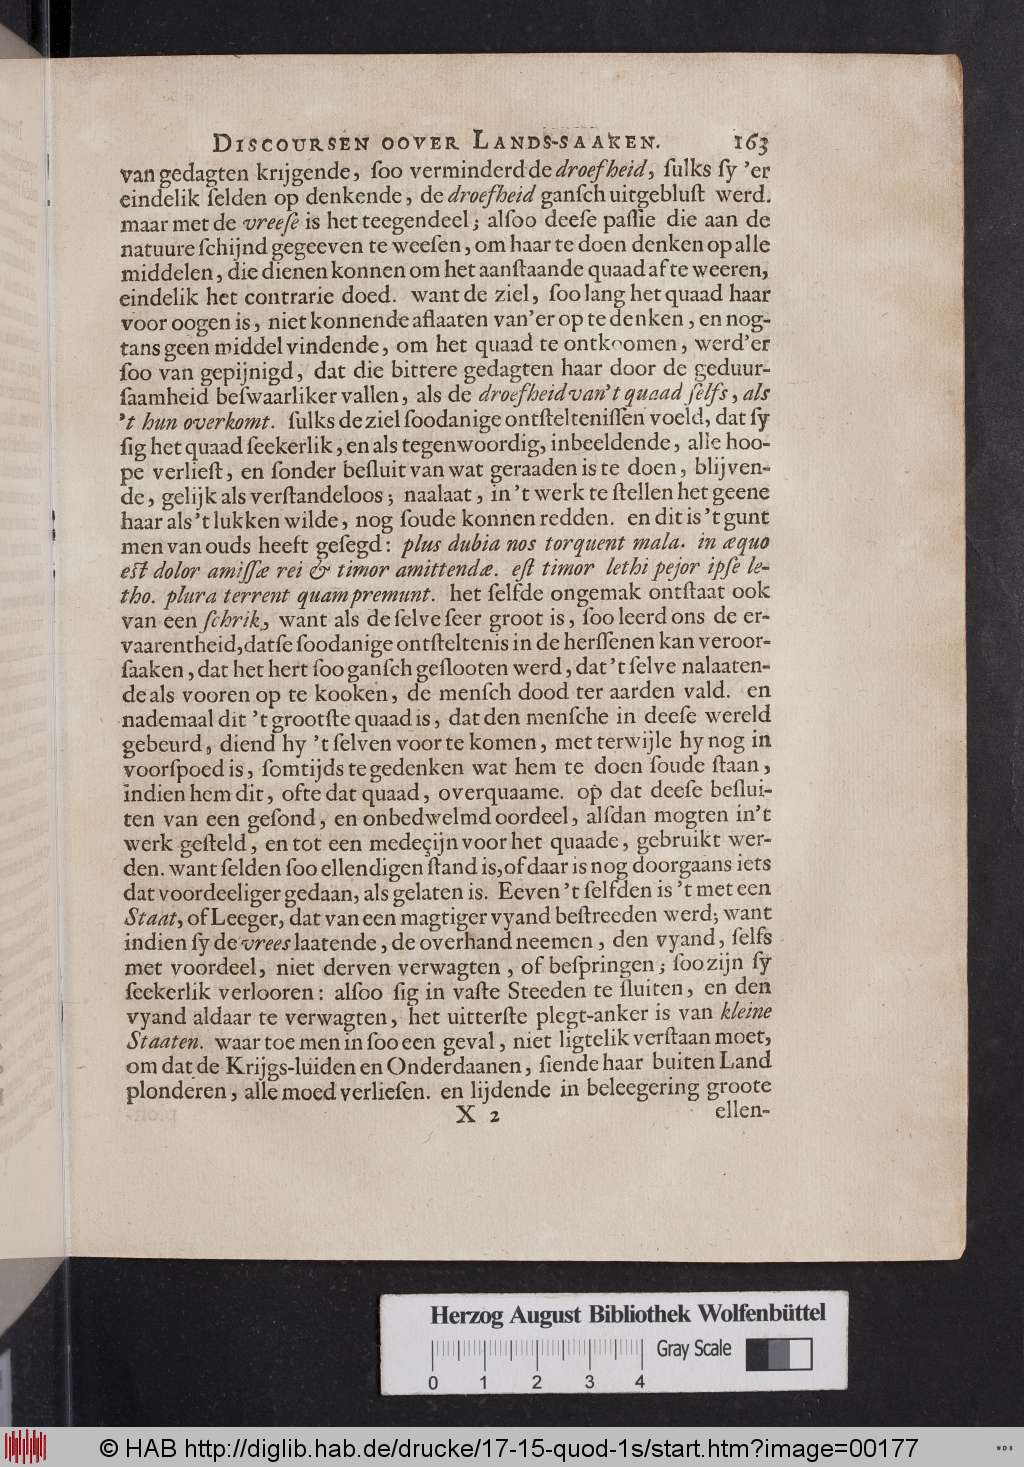 DISCOURSEN OOVER LANDS-SAAKEN. 163
van gedagten krijgende, ſoo verminderd de droefheid, ſulks ſy ’er
eindelik ſelden op denkende, de droefheid ganſch uitgebluſt werd.
maar met de vreeſe is het teegendeel; alſoo deeſe paſſie die aan de
natuure ſchijnd gegeeven te weeſen, om haar te doen denken op alle
middelen, die dienen konnen om het aanſtaande quaad af te weeren,
eindelik het contrarie doed. want de ziel, ſoo lang het quaad haar
voor oogen is, niet konnende aflaaten van’er op te denken, en nog-
tans geen middel vindende, om het quaad te ontkoomen, werd’er
ſoo van gepijnigd, dat die bittere gedagten haar door de geduur-
ſaamheid beſwaarliker vallen, als de droefheid van’t quaad ſelfs, als
’t hun overkomt. ſulks de ziel ſoodanige ontſtelteniſſen voeld, dat ſy
ſig het quaad ſeekerlik, en als tegenwoordig, inbeeldende, alle hoo-
pe verlieſt, en ſonder beſluit van wat geraaden is te doen, blijven-
de, gelijk als verſtandeloos; naalaat, in’t werk te ſtellen het geene
haar als’t lukken wilde, nog ſoude konnen redden. en dit is’t gunt
men van ouds heeft geſegd: plus dubia nos torquent mala. in æquo
eſt dolor amiſſæ rei & timor amittendæ. eſt timor lethi pejor ipſe le-
tho. plura terrent quam premunt. het ſelfde ongemak ontſtaat ook
van een ſchrik, want als de ſelve ſeer groot is, ſoo leerd ons de er-
vaarentheid, datſe ſoodanige ontſteltenis in de herſſenen kan veroor-
ſaaken, dat het hert ſoo ganſch geſlooten werd, dat’t ſelve nalaaten-
de als vooren op te kooken, de menſch dood ter aarden vald. en
nademaal dit ’t grootſte quaad is, dat den menſche in deeſe wereld
gebeurd, diend hy ’t ſelven voor te komen, met terwijle hy nog in
voorſpoed is, ſomtijds te gedenken wat hem te doen ſoude ſtaan,
indien hem dit, ofte dat quaad, overquaame. op dat deeſe beſlui-
ten van een geſond, en onbedwelmd oordeel, alſdan mogten in’t
werk geſteld, en tot een medeçijn voor het quaade, gebruikt wer-
den. want ſelden ſoo ellendigen ſtand is, of daar is nog doorgaans iets
dat voordeeliger gedaan, als gelaten is. Eeven ’t ſelfden is ’t met een
Staat, of Leeger, dat van een magtiger vyand beſtreeden werd; want
indien ſy de vrees laatende, de overhand neemen, den vyand, ſelfs
met voordeel, niet derven verwagten, of beſpringen; ſoo zijn ſy
ſeekerlik verlooren: alſoo ſig in vaſte Steeden te ſluiten, en den
vyand aldaar te verwagten, het uitterſte plegt-anker is van kleine
Staaten. waar toe men in ſoo een geval, niet ligtelik verſtaan moet,
om dat de Krijgs-luiden en Onderdaanen, ſiende haar buiten Land
plonderen, alle moed verlieſen. en lijdende in beleegering groote
X 2 ellen-
Herzog August Bibliothek Wolfenbüttel
Gray Scale
0 1 2 3 4
© HAB http://diglib.hab.de/drucke/17-15-quod-1s/start.htm?image=00177